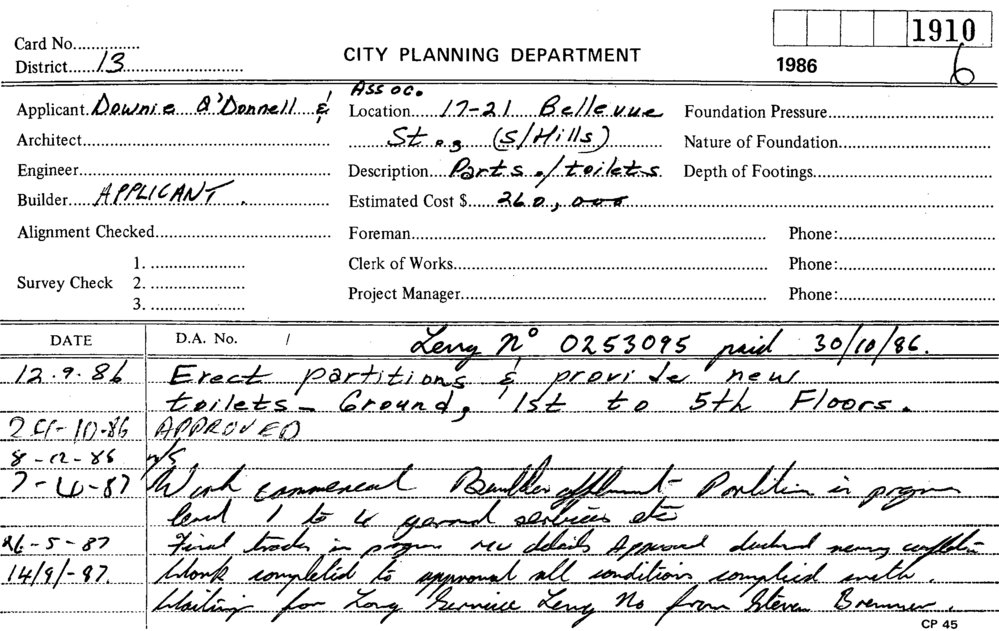 1910
Card No...............
CITY PLANNING DEPARTMENT
District......13..........................
1986
6
Assoc.
Applicant Downie O'Donnell &
Location 17-21 Bellevue
Foundation Pressure
Architect
St., (S/Hills)
Nature of Foundation
Engineer
Description Parts./toilets
Depth of Footings
Builder APPLICANT.
Estimated Cost $ 260,000
Alignment Checked
Foreman
Phone:
Survey Check
1.
Clerk of Works
Phone:
2.
Project Manager
Phone:
3.
DATE
D.A. No. /
Levy No 0253095 paid 30/10/86.
12.9.86 Erect partitions & provide new
toilets - Ground, 1st to 5th Floors.
10-86 APPROVED
8-12-86 n/s
7-4-87 Work commenced Builder Partition in progress
level 1 to 4 general services etc
26-5-87 Final trades in progress details Approval nearing completion
14/9/-87 Work completed to approval all conditions complied with.
Waiting for Long Service Levy No from Steven Bremner.
CP 45